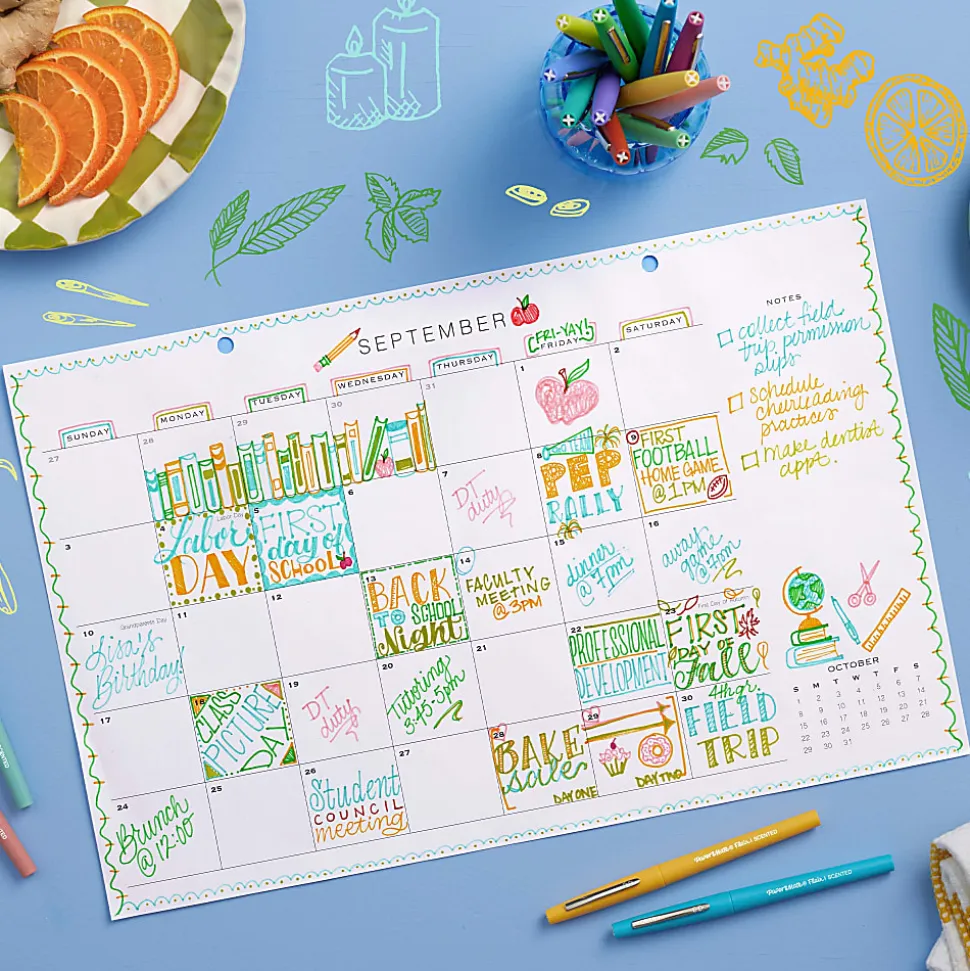 SEPTEMBER
SUNDAY
MONDAY
TUESDAY
WEDNESDAY
THURSDAY
(FRI-YAY!)
FRIDAY
SATURDAY
27
28
29
30
31
1
2
3
4
Labor Day
Labor
DAY
5
FIRST
day of
SCHOOL
6
7
DT
duty
8
GO TEAM
PEP
RALLY
9
FIRST
FOOTBALL
HOME GAME
@ 1PM
10
Grandparents Day
Lisa's
Birthday!
11
12
13
BACK
TO SCHOOL
Night
14
FACULTY
MEETING
@ 3PM
15
dinner
@ 7pm
16
away
game
@ 7pm
17
18
CLASS
PICTURE
DAY
19
DT
duty
20
Tutoring
3:45-5pm
21
22
PROFESSIONAL
DEVELOPMENT
23
First Day of Autumn
FIRST
DAY OF
Fall
24
Brunch
@ 12:00
25
26
Student
COUNCIL
meeting
27
28
BAKE
sale
DAY ONE
29
DAY TWO
30
4th gr.
FIELD
TRIP
NOTES
collect field
trip permission
slips
schedule
cheerleading
practices
make dentist
appt.
OCTOBER
S M T W T F S
1 2 3 4 5 6 7
8 9 10 11 12 13 14
15 16 17 18 19 20 21
22 23 24 25 26 27 28
29 30 31
PaperMate Flair SCENTED
PaperMate Flair SCENTED